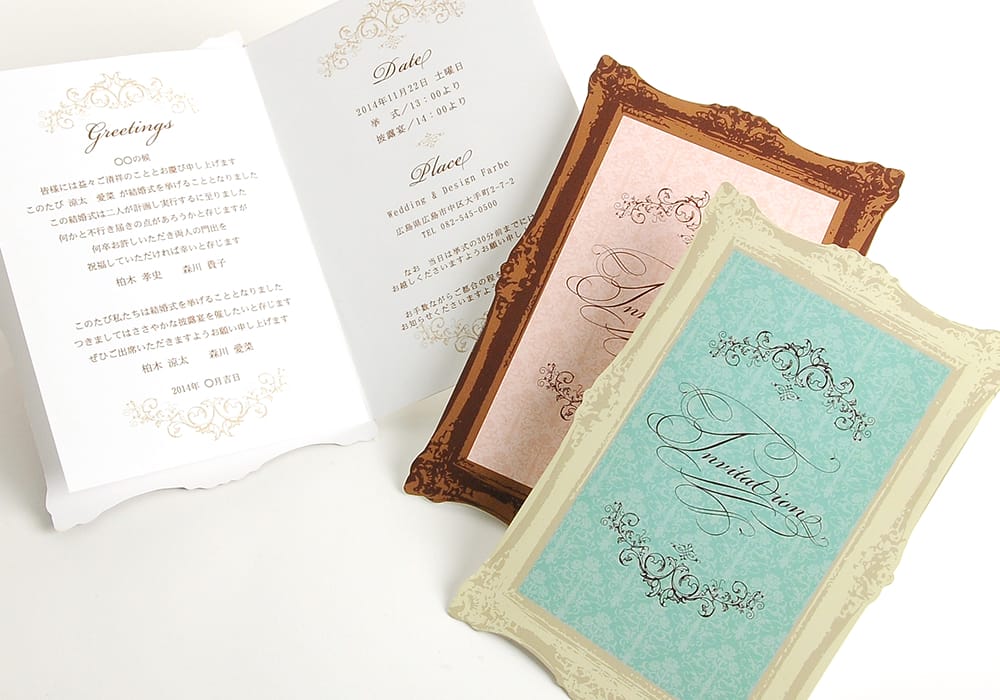 Greetings
〇〇の候
皆様には益々ご清祥のこととお慶び申し上げます
このたび 涼太 愛菜 が結婚式を挙げることとなりました
この結婚式は二人が計画し実行するに至りました
何かと不行き届きの点があろうかと存じますが
何卒お許しいただき両人の門出を
祝福していただければ幸いと存じます
柏木 孝史 森川 貴子
このたび私たちは結婚式を挙げることとなりました
つきましてはささやかな披露宴を催したいと存じます
ぜひご出席いただきますようお願い申し上げます
柏木 涼太 森川 愛菜
2014年 〇月吉日
Date
2014年11月22日 土曜日
挙 式/13:00より
披露宴/14:00より
Place
Wedding & Design Farbe
広島県広島市中区大手町2-7-2
TEL 082-545-0500
なお 当日は挙式の30分前までには
お越しくださいますようお願い申し
お手数ながらご都合の程を
お知らせくださいますよう
Inv
Invitation